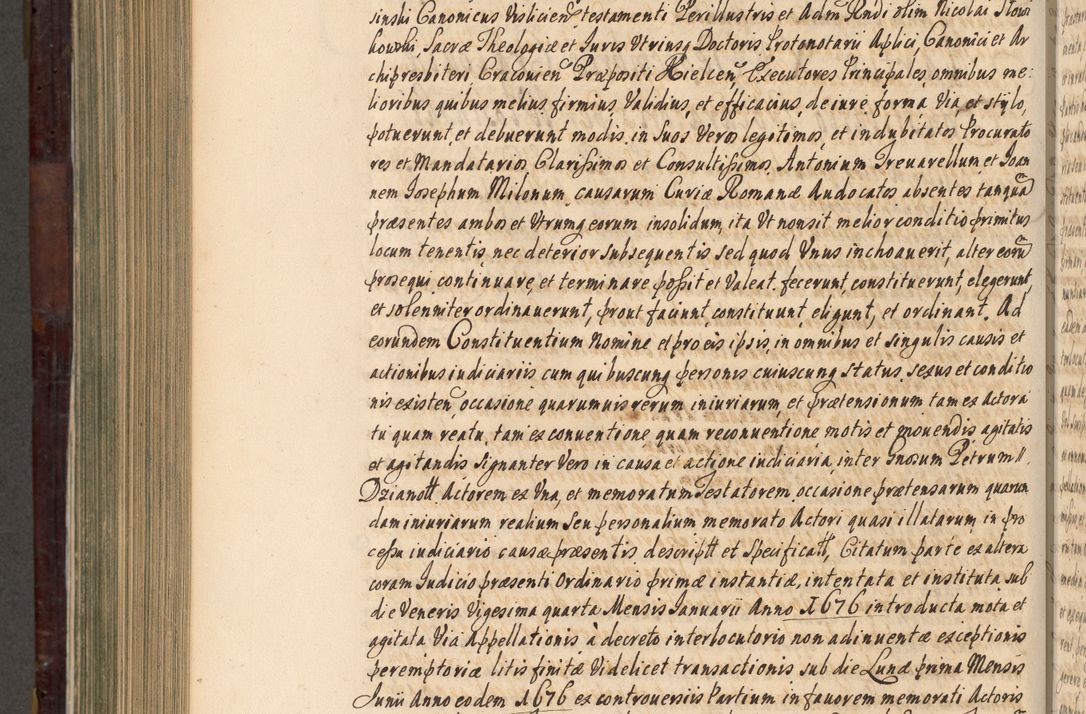 sinski Canonicus Vislicien testamenti Perillustris et Adm Rndi olim Nicolai Słowi
kowski, Sacræ Theologiæ et Iuris Vtriusq Doctoris Protonotarii Aplici, Canonici et Ar
chipresbiteri Cracovien Præpositi Kielcen, Executores Principales, omnibus me:
lioribus quibus melius, firmius, Validius, et efficacius, de iure forma Via, et stylo,
potuerunt, et debuerunt modis, in suos Veros legitimos, et indubitatos Procurato
res et Mandatarios Clarissimos et Consultissimos, Antonium Trevarellum, et Ioan
nem Iosephum Milonum, causarum Curiæ Romanæ Audocatos absentes tanquã
præsentes ambos et Vtrumq eorum insolidum, ita Vt non sit melior conditio primitus
locum tenentis, nec deterior subsequentis sed quod Vnus inchoauerit, alter eorũ
prosequi continuare, et terminare possit et Valeat. fecerunt, constituerunt, elegerunt,
et solenniter ordinauerunt, prout faciunt, constituunt, eligunt, et ordinant. Ad
eorundem Constituentium Nomine et pro eis ipsis, in omnibus et singulis causis et
actionibus iudiciariis cum quibuscunq personis cuiuscunq status, sexus et conditio
nis existen, occasione quarumuis rerum iniuriarum, et prætensionum tam ex Actora
tu quam reatu, tam ex conuentione quam reconuentione motis et mouendis, agitatis
et agitandis signanter Vero in causa et actione iudiciaria, inter Gnosum Petrum //
Dzianott Actorem ex Vna, et memoratum Testatorem, occasione prætensarum quarun
dam iniuriarum realium seu personalium memorato Actori quasi illatarum, in pro
cessu iudiciario causæ præsentis descriptt et specificatt, Citatum parte ex altera
coram Iudicio præsenti Ordinario primæ instantiæ, intentata et instituta sub
die Veneris Vigesima quarta Mensis Ianuarii Anno 1676 introducta mota et
agitata Via Appellationis à decreto interlocutorio non adinuentæ exceptionis
peremptoriæ litis finitæ Videlicet transactionis sub die Lunæ prima Mensis
Iunii Anno eodem 1676 ex controuersiis Partium in fauorem memorati Actoris